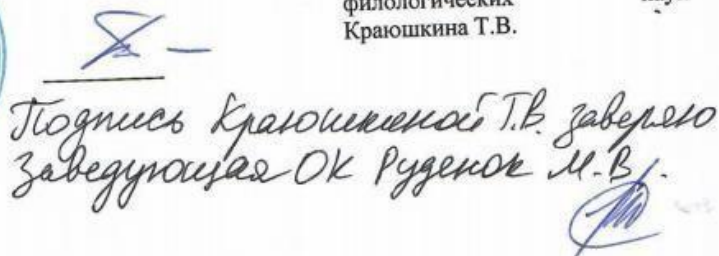 филологических наук
Краюшкина Т.В.
Подпись Краюшкиной Т.В. заверяю
Заведующая ОК Руденок М.В.